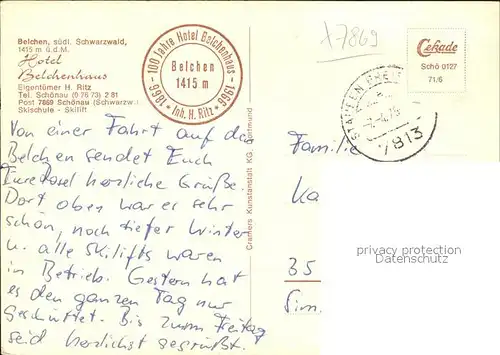 Belchen, südl. Schwarzwald,
1415 m ü.d.M.
Hotel
Belchenhaus
Eigentümer H. Ritz
Tel. Schönau (0 76 73) 2 81
Post 7869 Schönau (Schwarzw.)
Skischule - Skilift
100 Jahre Hotel Belchenhaus
1866 - 1966
Belchen
1415 m
Inh. H. Ritz
x7869
Cekade
Schö 0127
71/6
STAUFEN
7813
Von einer Fahrt auf das
Belchen sendet Euch
Eure Rosel herzliche Grüße.
Dort oben war es sehr
schön, noch tiefer Winter
u. alle Skilifts waren
in Betrieb. Gestern hat
es den ganzen Tag nur
geschüttet. Bis zum Freitag
seid herzlichst gegrüßt.
Cramers Kunstanstalt KG, Dortmund
Familie
Ka
35
Sim
privacy protection
Datenschutz